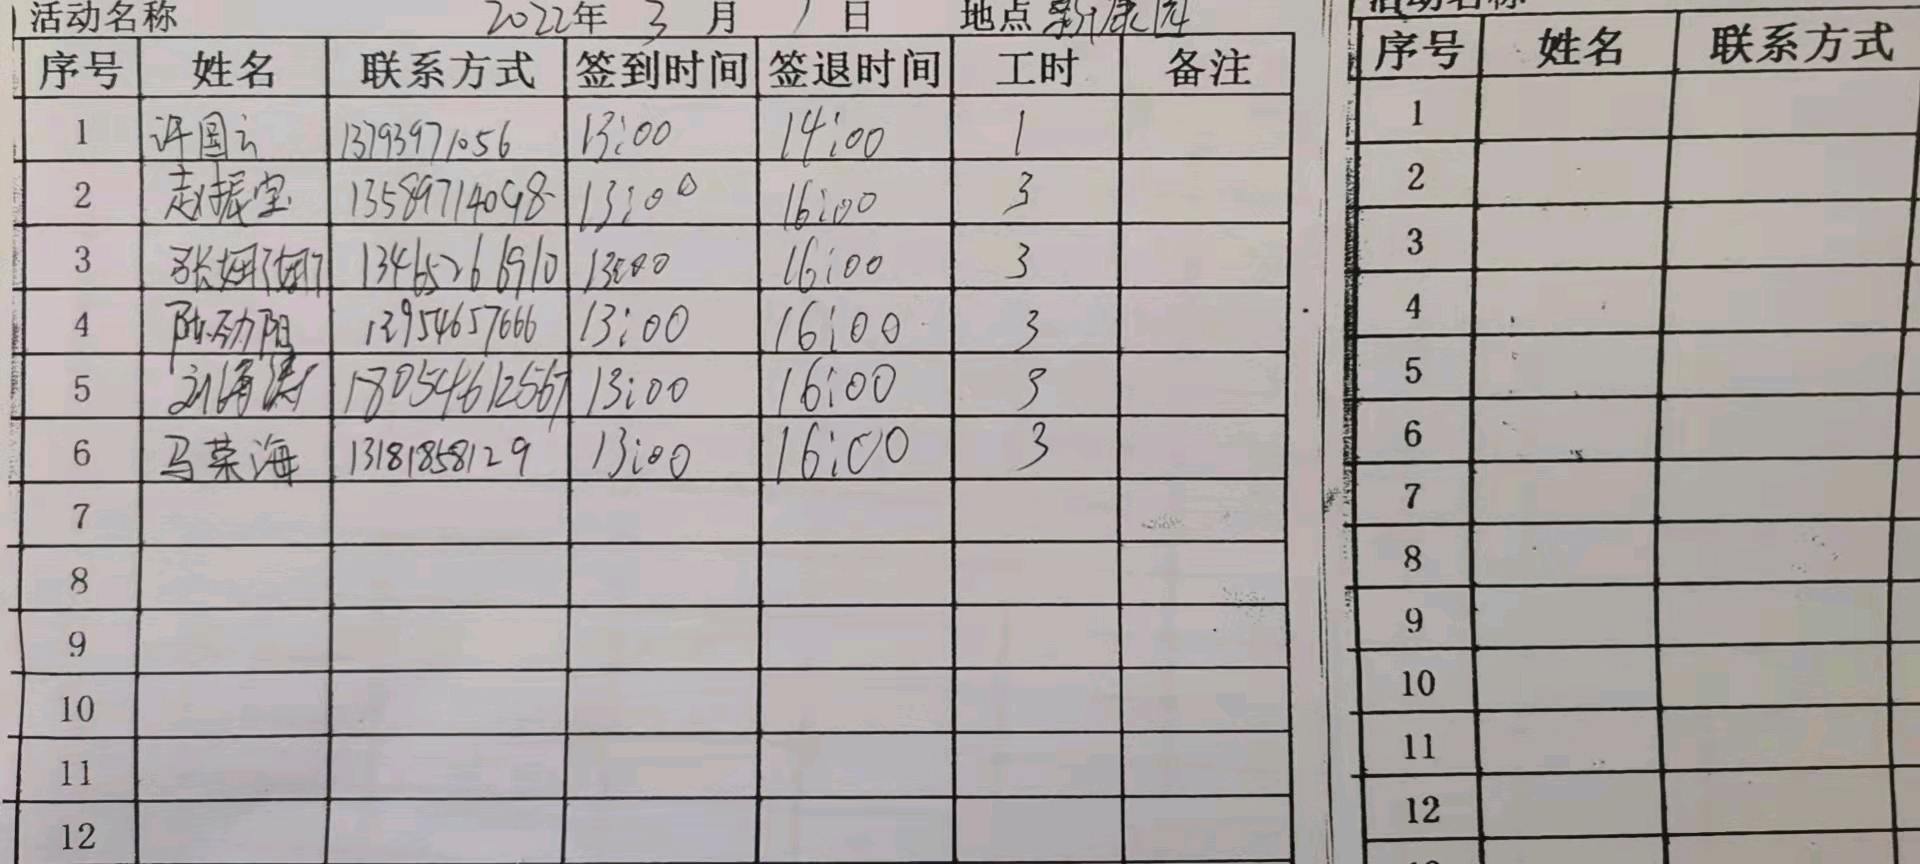 活动名称 2022年 3 月 1 日 地点 新康园
序号 姓名 联系方式 签到时间 签退时间 工时 备注
1 许国云 13793971056 13:00 14:00 1
2 赵振宝 13589714098 13:00 16:00 3
3 张姗姗 13465266910 13:00 16:00 3
4 陈劲阳 13954657666 13:00 16:00 3
5 刘海涛 18054612567 13:00 16:00 3
6 马荣海 13181858129 13:00 16:00 3
7
8
9
10
11
12
活动名称
序号 姓名 联系方式
1
2
3
4
5
6
7
8
9
10
11
12